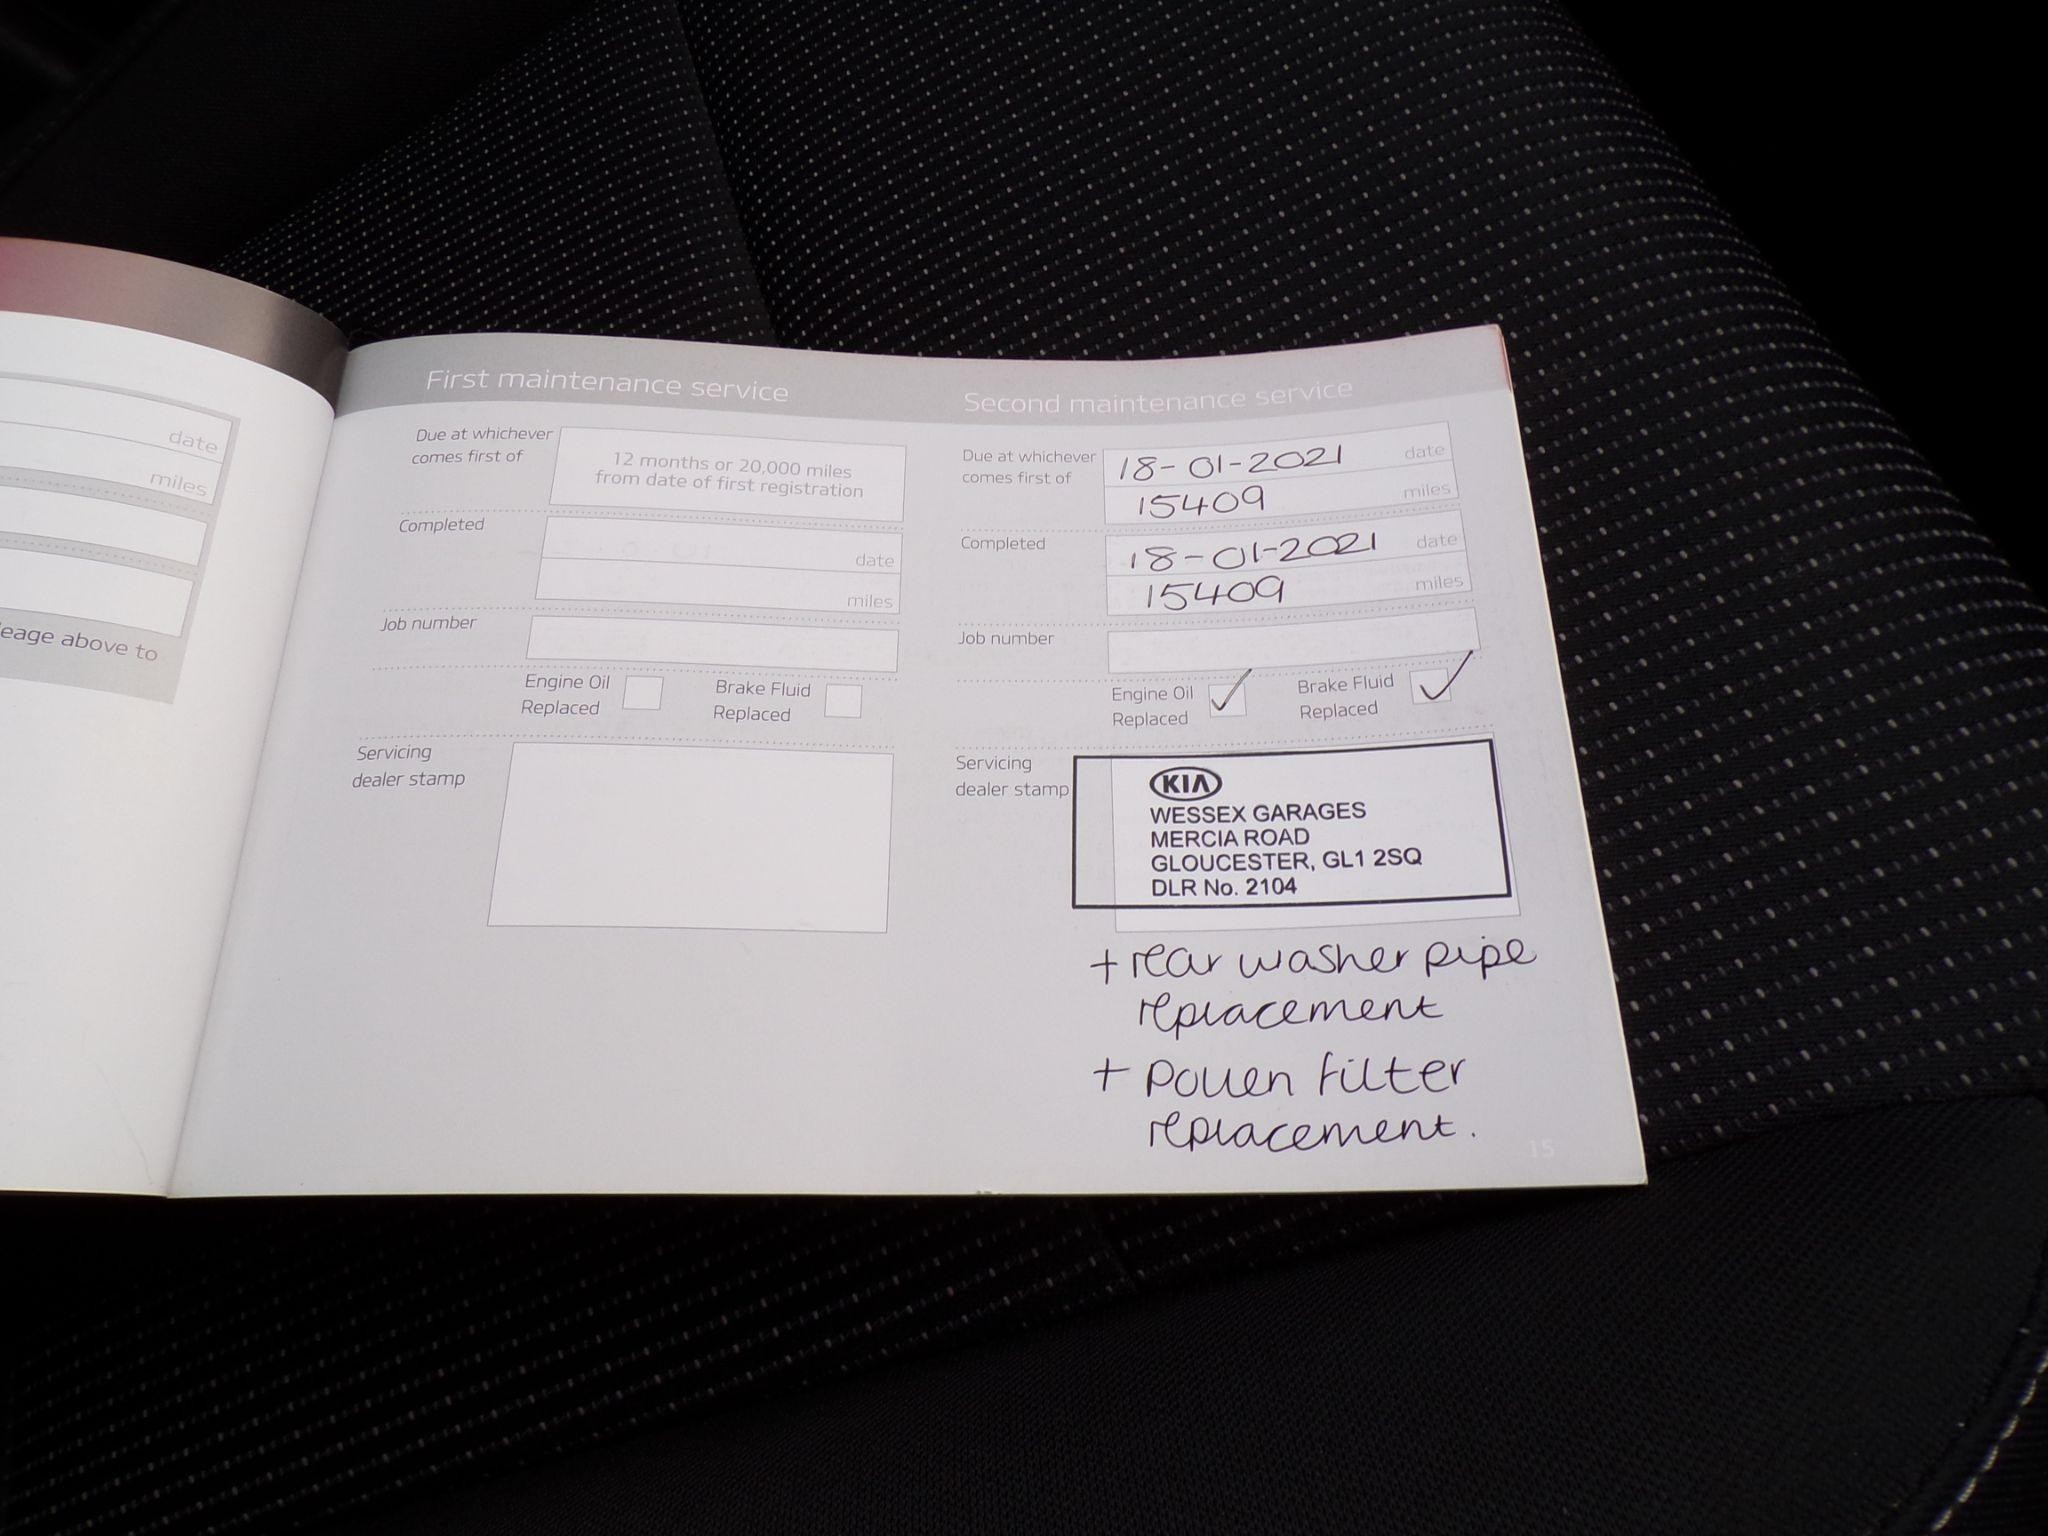 date
miles
eage above to
First maintenance service
Due at whichever
comes first of
12 months or 20,000 miles
from date of first registration
Completed
date
miles
Job number
Engine Oil
Replaced
Brake Fluid
Replaced
Servicing
dealer stamp
Second maintenance service
Due at whichever
comes first of
18-01-2021 date
15409 miles
Completed
18-01-2021 date
15409 miles
Job number
Engine Oil
Replaced
Brake Fluid
Replaced
Servicing
dealer stamp
KIA
WESSEX GARAGES
MERCIA ROAD
GLOUCESTER, GL1 2SQ
DLR No. 2104
+ rear washer pipe
replacement
+ pollen filter
replacement.
15